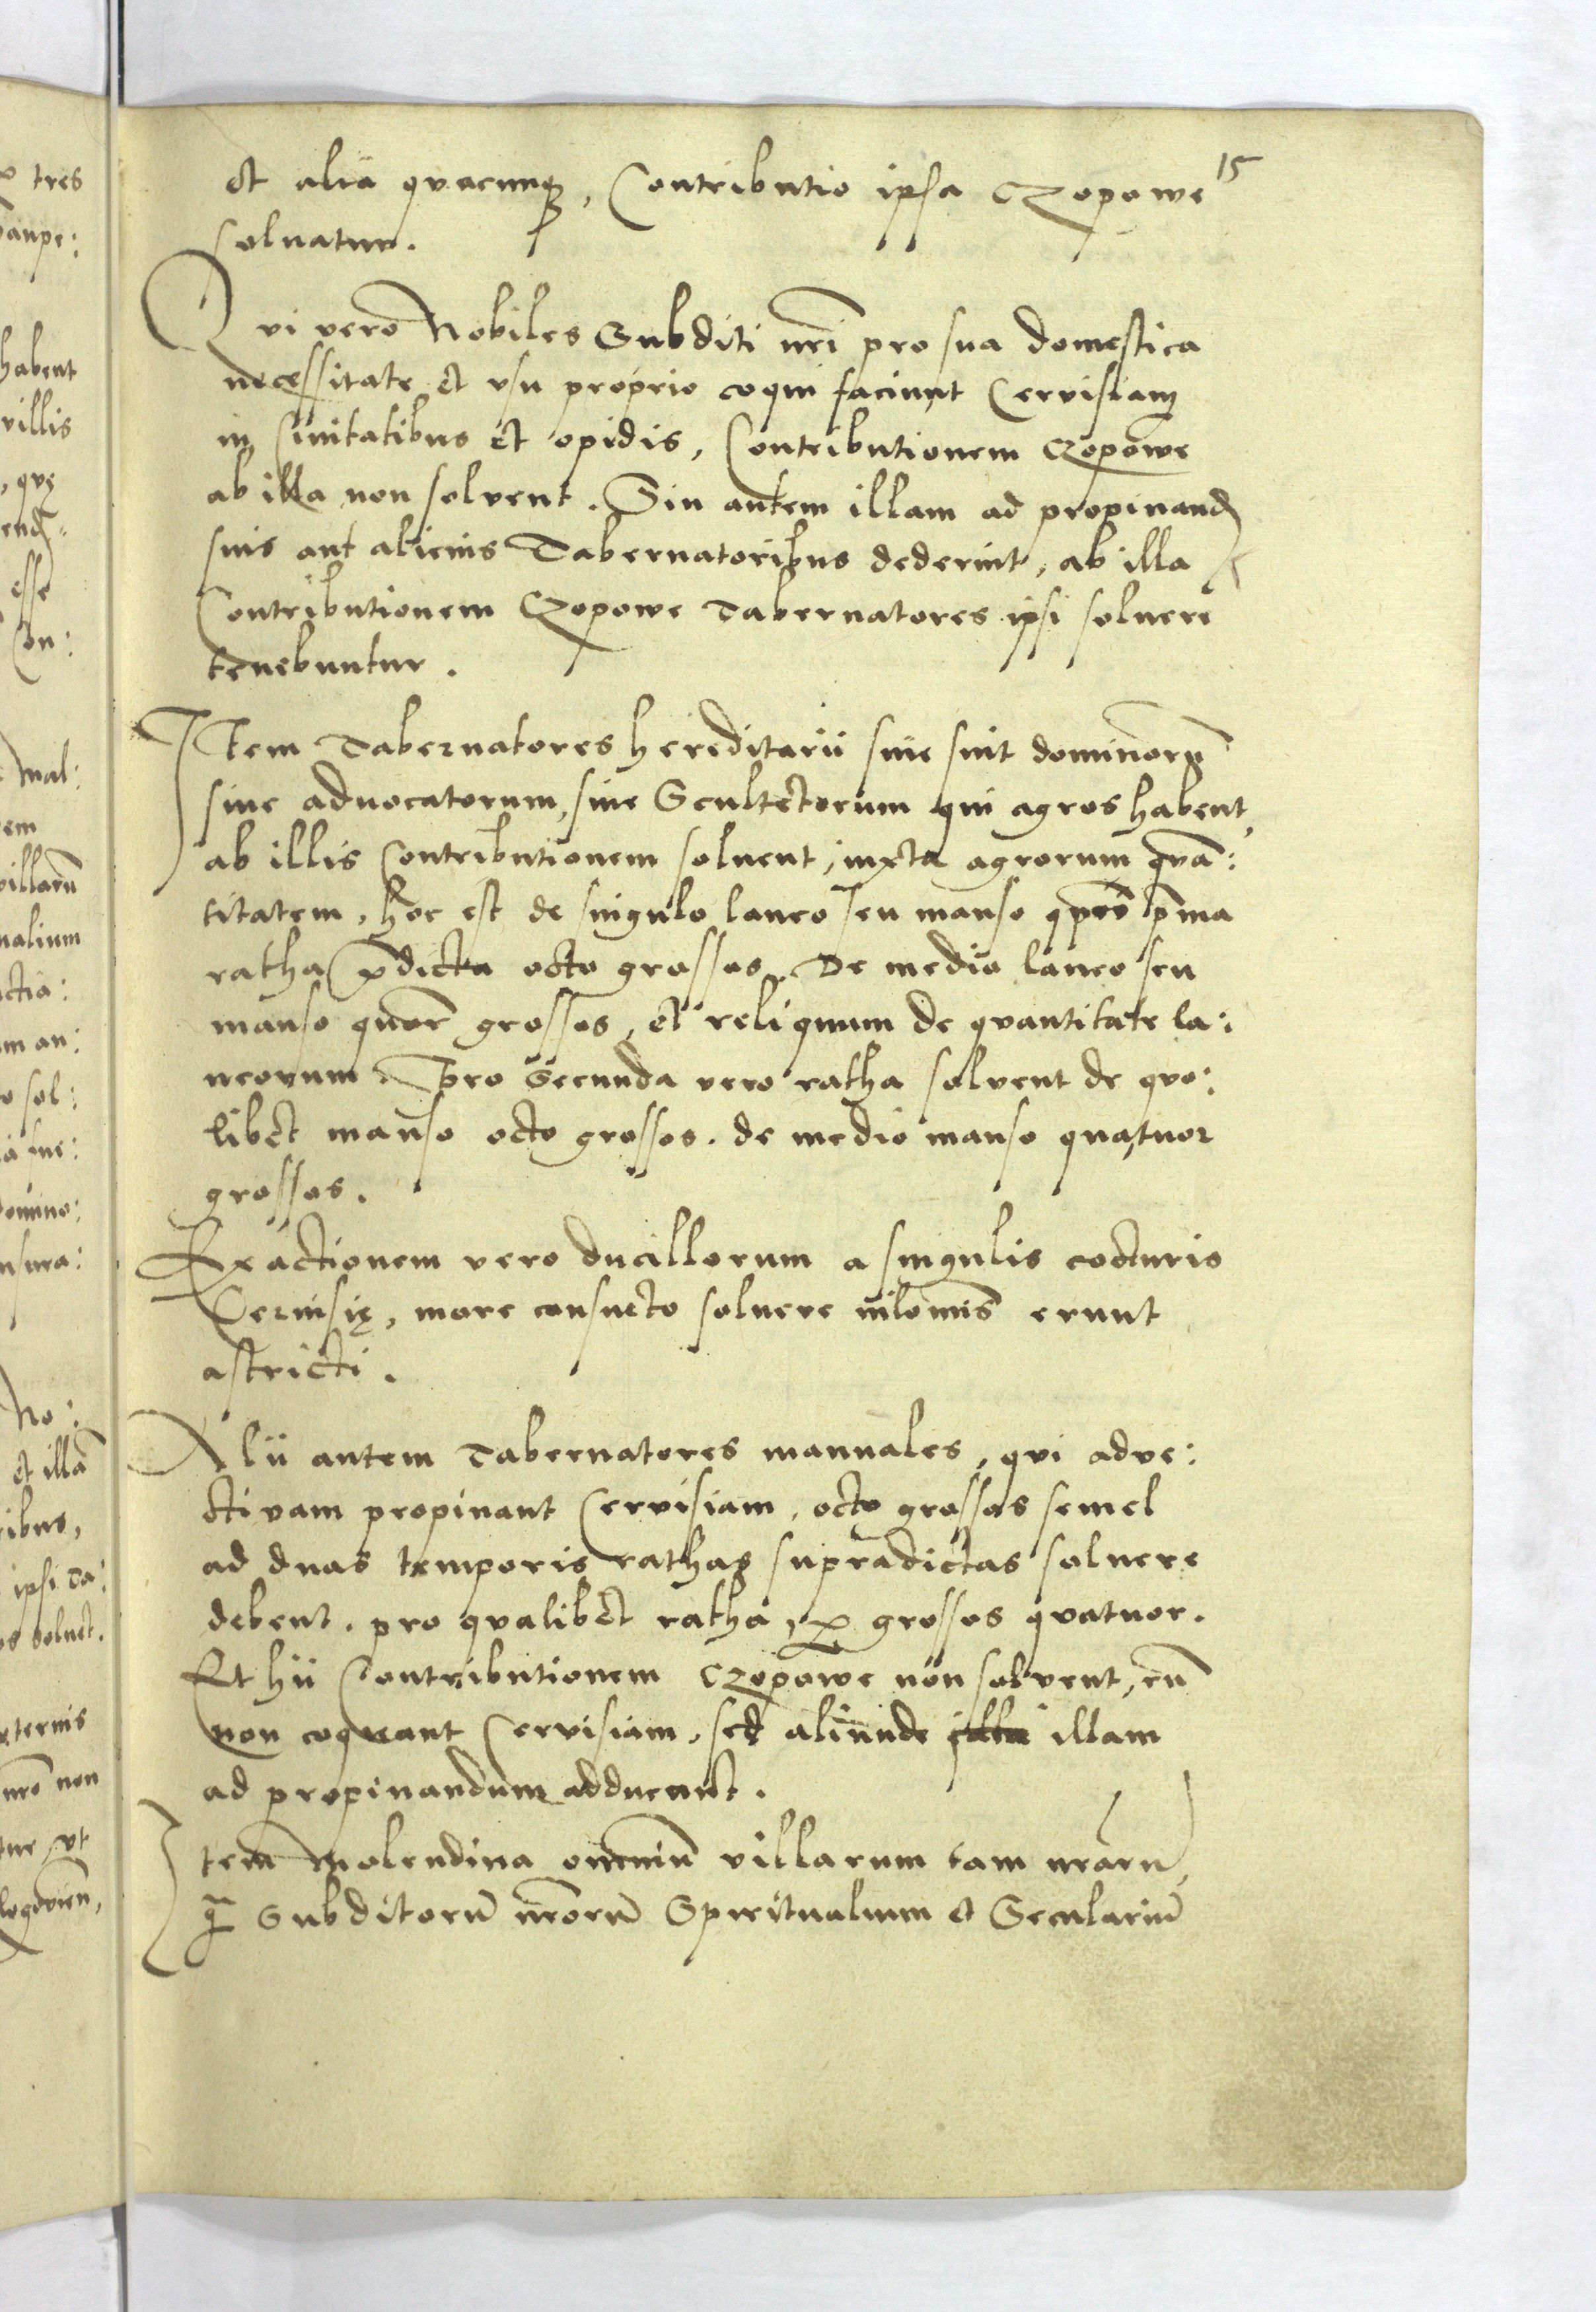 15
et alia quacunq, Contributio ipsa Czopowe
soluatur.
Qui vero Nobiles Subditi nri pro sua domestica
necessitate et vsu proprio coqui faciunt Cervisiam
in Ciuitatibus et opidis, Contributionem Czopowe
ab illa non solvent. Sin autem illam ad propinand
suis aut alienis Tabernatoribus dederint, ab illa
Contributionem Czopowe Tabernatores ipsi soluere
tenebuntur.
Item Tabernatores hereditarii siue sint dominorū
siue aduocatorum, siue Scultetorum qui agros habent,
ab illis Contributionem soluent, iuxta agrorum quā:
titatem, hoc est de singulo laneo seu manso pma
ratha pdicta octo grossos. De medio laneo seu
manso quor grossos, et reliquum de quantitate la:
neorum. Pro Secunda vero ratha solvent de quo:
libet manso octo grossos. de medio manso quatuor
grossos.
Exactionem vero ducillorum a singulis cocturis
Ceruisię, more consueto soluere nilomis erunt
astricti.
Alii autem Tabernatores manuales, qui adve:
ctivam propinant Cervisiam, octo grossos semel
ad duas temporis rathas supradictas soluere
debent. pro qualibet ratha, p grossos quatuor.
Et hii Contributionem Czopowe non solvent, cū
non coqueant Cervisiam, sed aliunde illam
ad propinandum adducant.
Item Molendina omniū villarum tam nrarū,
q Subditorū nrorū Spiritualium et Seculariū
tres
habent
villis
, quę
esse
Con:
mal:
villarū
m an:
sol:
No:
et illā
ibus,
ipsi Ta:
non
vt